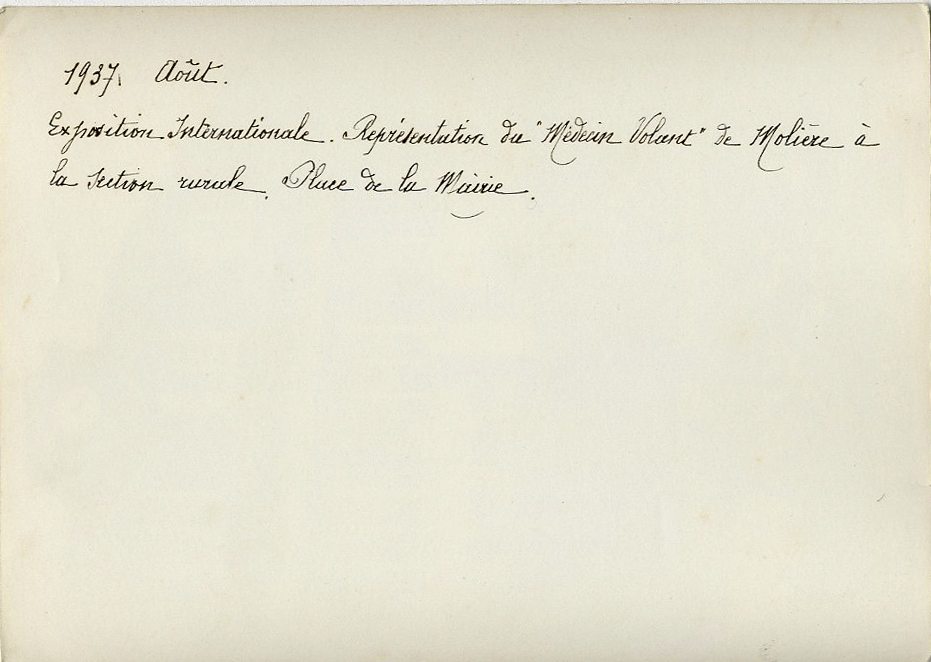 1937. Août.
Exposition Internationale. Représentation du "Médecin Volant" de Molière à
la Section rurale. Place de la Mairie.